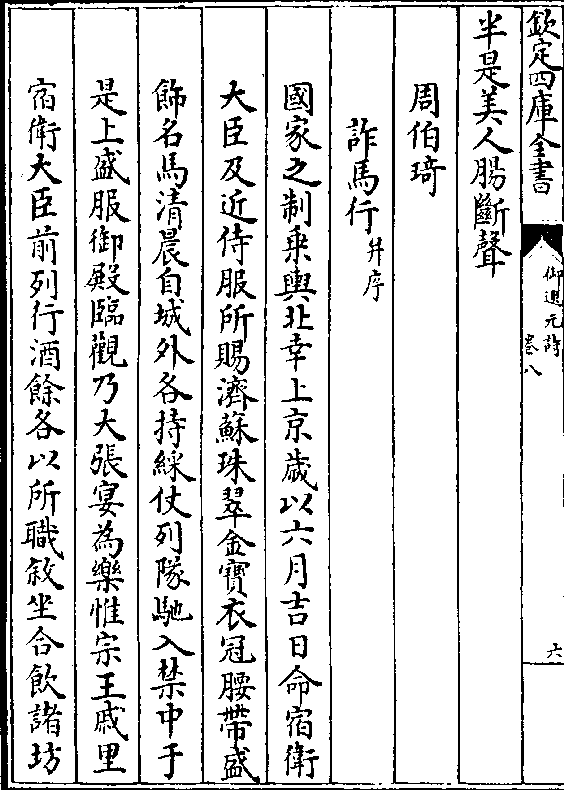 欽定四庫全書
御選元詩
卷八
六
半是美人腸斷聲
周伯琦
詐馬行
并序
國家之制乗輿北幸上京歲以六月吉日命宿衛
大臣及近侍服所賜濟蘇珠翠金寶衣冠腰帶盛
飾名馬清晨自城外各持綵仗列隊馳入禁中于
是上盛服御殿臨觀乃大張宴為樂惟宗王戚里
宿衛大臣前列行酒餘各以所職敘坐合飲諸坊